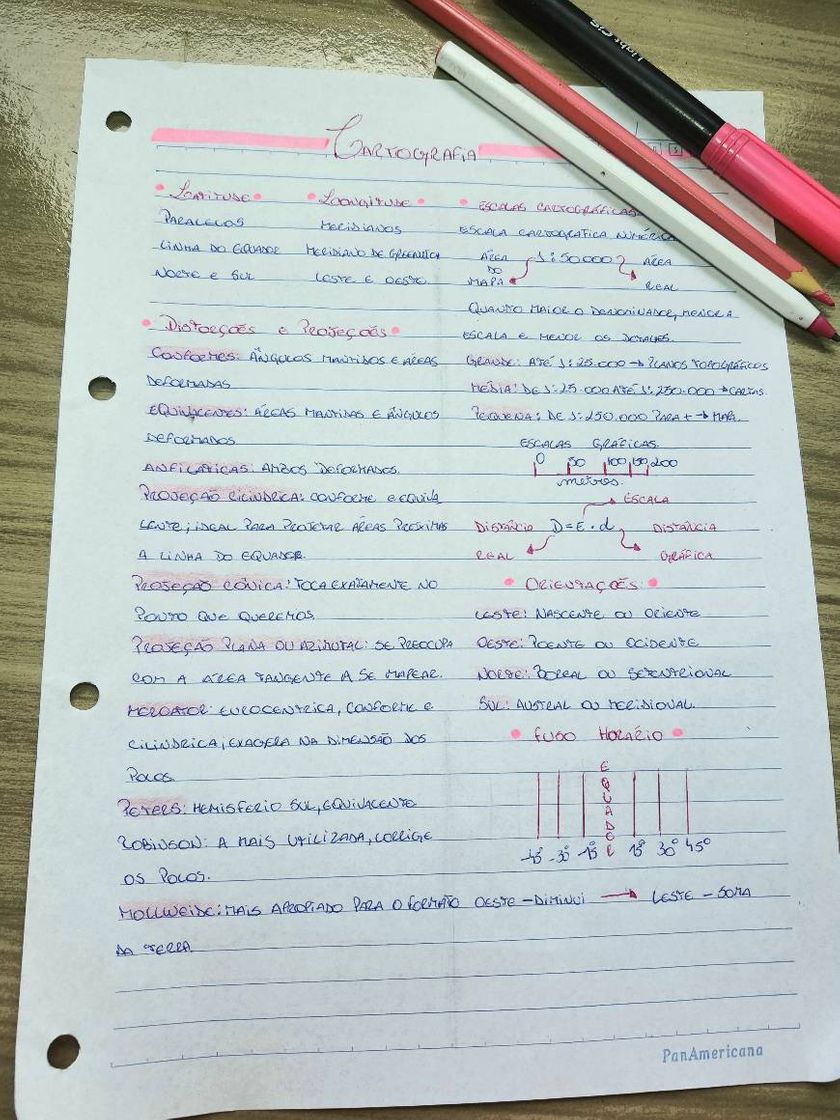 Light CiS
CARTOGRAFIA
LATITUDE
PARALELOS
LINHA DO EQUADOR
NORTE E SUL
LOONGITUDE
MERIDIANOS
MERIDIANO DE GREENWICH
LESTE E OESTE
DISTORÇÕES E PROJEÇÕES
CONFORMES: ÂNGULOS MANTIDOS E ÁREAS
DEFORMADAS
EQUIVALENTES: ÁREAS MANTIDAS E ÂNGULOS
DEFORMADOS
ANFILÁTICAS: AMBOS DEFORMADOS.
PROJEÇÃO CILÍNDRICA: CONFORME E EQUIVA
LENTE; IDEAL PARA PROJETAR ÁREAS PRÓXIMAS
A LINHA DO EQUADOR.
PROJEÇÃO CÔNICA: TOCA EXATAMENTE NO
PONTO QUE QUEREMOS
PROJEÇÃO PLANA OU AZIMUTAL: SE PREOCUPA
COM A ÁREA TANGENTE A SE MAPEAR.
MERCATOR: EUROCENTRICA, CONFORME E
CILINDRICA, EXAGERA NA DIMENSÃO DOS
POLOS
PETERS: HEMISFERIO SUL, EQUIVALENTE
ROBINSON: A MAIS UTILIZADA, CORRIGE
OS POLOS.
MOLLWEIDE: MAIS APROPIADO PARA O FORMATO
DA TERRA
ESCALAS CARTOGRÁFICAS
ESCALA CARTOGRÁFICA NUMÉRICA
ÁREA DO MAPA 1:50.000 ÁREA REAL
QUANTO MAIOR O DENOMINADOR, MENOR A
ESCALA E MENOR OS DETALHES.
GRANDE: ATÉ 1:25.000 → PLANOS TOPOGRÁFICOS
MÉDIA: DE 1:25.000 ATÉ 1:250.000 → CARTAS
PEQUENA: DE 1:250.000 PARA + → MAPA
ESCALAS GRÁFICAS
0 50 100 150 200
metros.
ESCALA
DISTÂNCIA REAL D=E.d DISTÂNCIA GRÁFICA
ORIENTAÇÕES
LESTE: NASCENTE OU ORIENTE
OESTE: POENTE OU OCIDENTE
NORTE: BOREAL OU SETENTRIONAL
SUL: AUSTRAL OU MERIDIONAL
FUSO HORÁRIO
EQUADOR
-45° -30° -15° 15° 30° 45°
OESTE - DIMINUI → LESTE - SOMA
PanAmericana